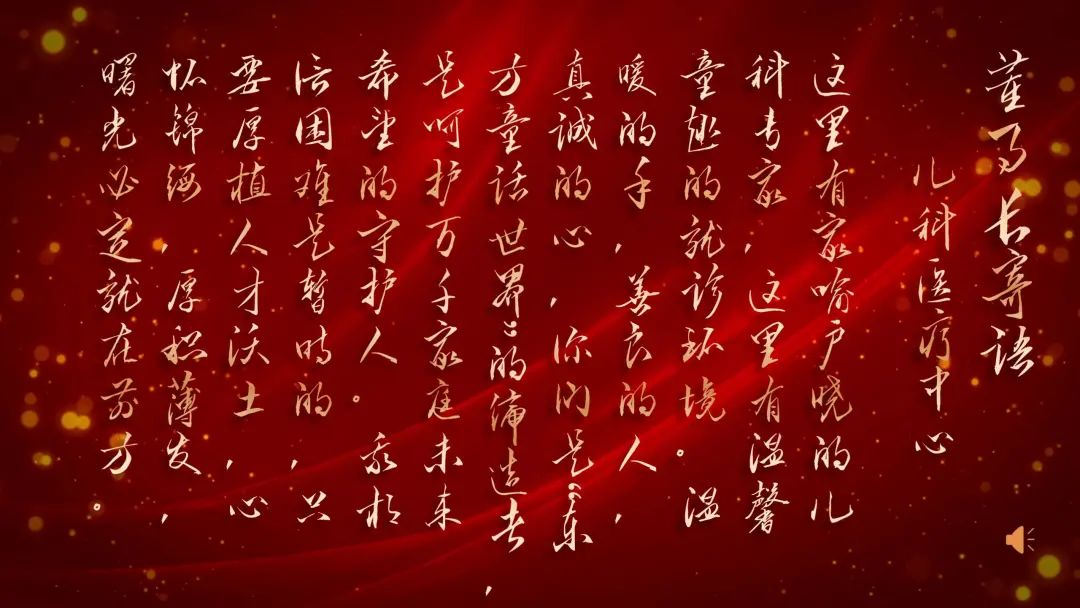 董事长寄语
儿科医疗中心
这里有家喻户晓的儿
科专家，这里有温馨
童趣的就诊环境。温
暖的手，善良的人，
真诚的心，你们是“东
方童话世界”的编造者，
是呵护万千家庭未来
希望的守护人。我相
信困难是暂时的，只
要厚植人才沃土，心
怀锦绣，厚积薄发，
曙光必定就在前方。